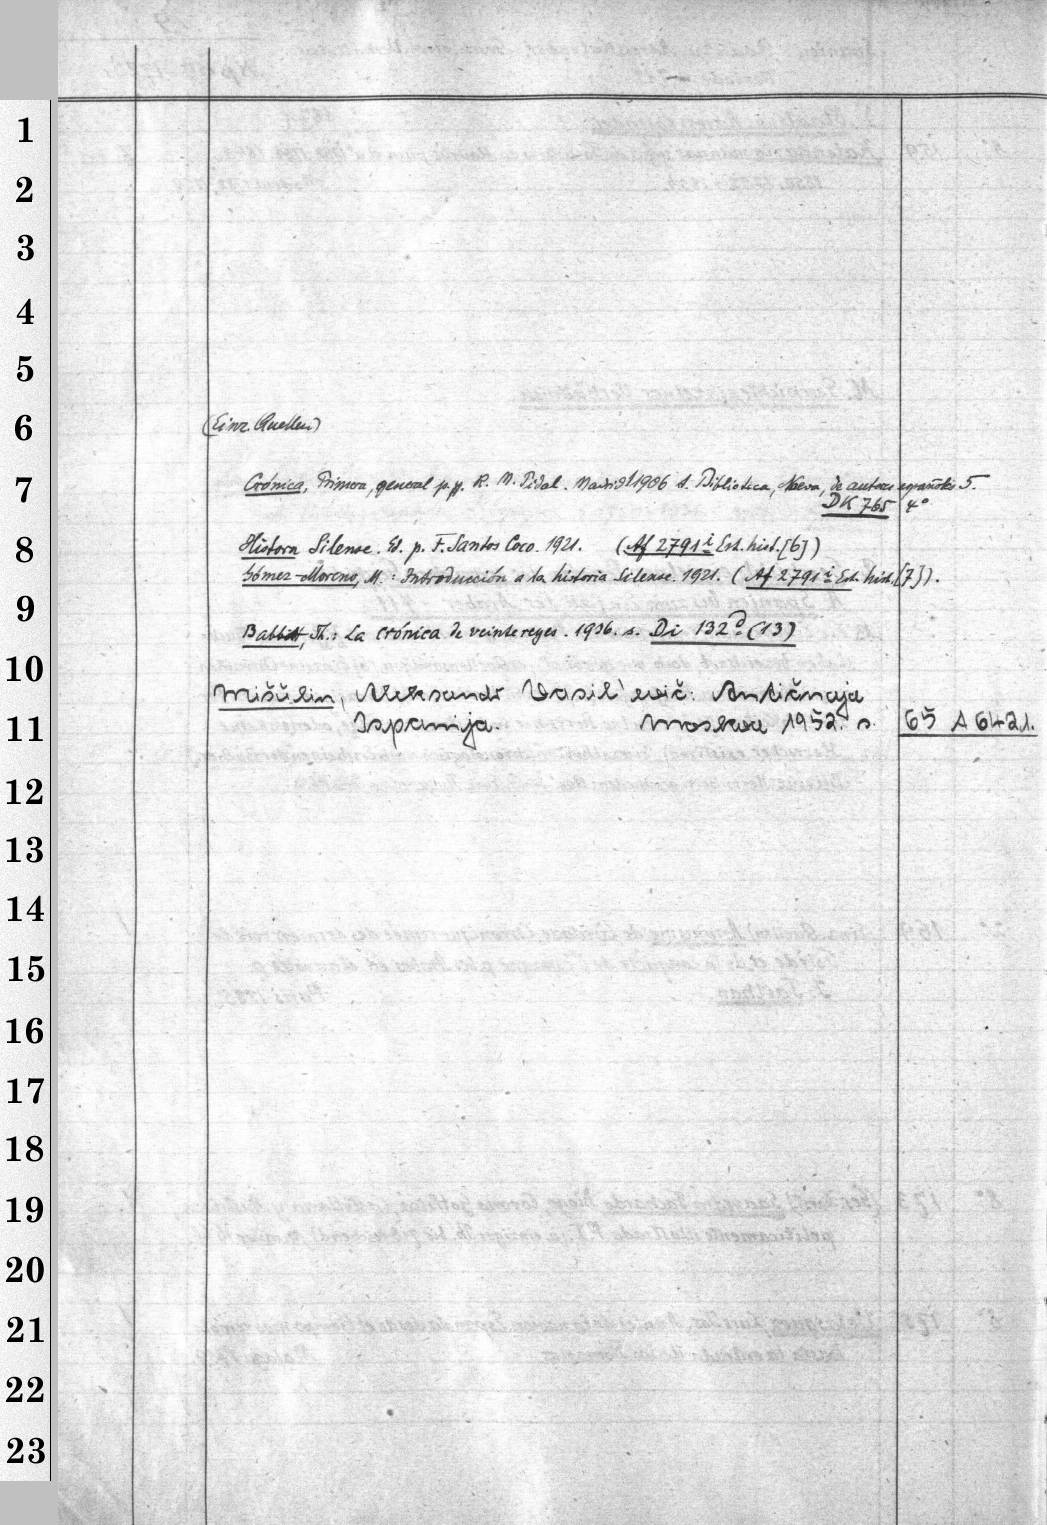 1
2
3
4
5
6
(Einz. Quellen)
7
Crónica, Primera, general p. p. R. M. Pidal. Madrid 1906 s. Biblioteca, Nueva, de autores españoles 5.
DK 765 4°
8
Historia Silense. Ed. p. F. Santos Coco. 1921. (Af 2791 i Est. hist. [6])
Gómez-Moreno, M.: Introducción a la historia Silense. 1921. (Af 2791 i Est. hist. [7]).
9
Babbitt, Th.: La crónica de veinte reyes. 1936. s. Di 132 d (13)
10
Mišulin, Aleksandr Vasil'evič: Antičnaja
11
Ispanija. Moskva 1952. s. 65 A 6421.
12
13
14
15
16
17
18
19
20
21
22
23